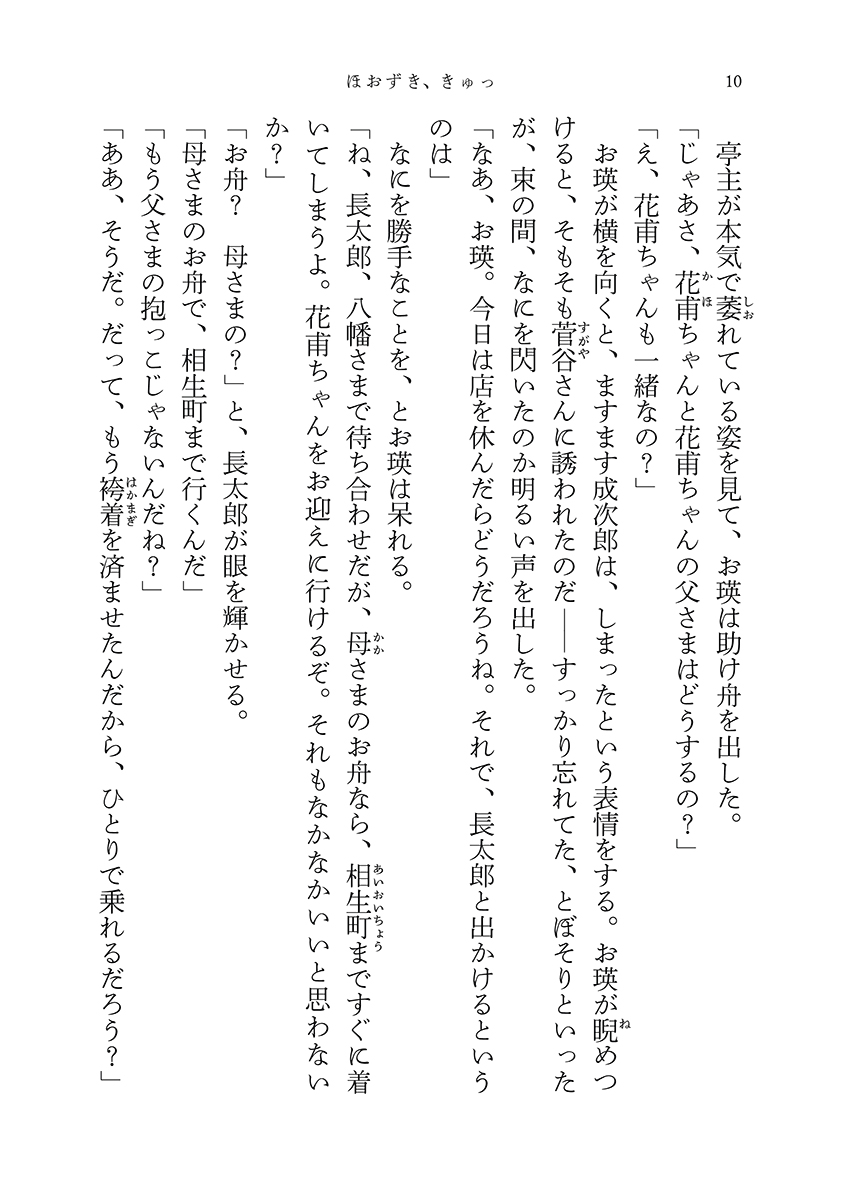 ほおずき、きゅっ
10
　亭主が本気で萎れている姿を見て、お瑛は助け舟を出した。
「じゃあさ、花甫ちゃんと花甫ちゃんの父さまはどうするの？」
「え、花甫ちゃんも一緒なの？」
　お瑛が横を向くと、ますます成次郎は、しまったという表情をする。お瑛が睨めつ
けると、そもそも菅谷さんに誘われたのだ――すっかり忘れてた、とぼそりといった
が、束の間、なにを閃いたのか明るい声を出した。
「なあ、お瑛。今日は店を休んだらどうだろうね。それで、長太郎と出かけるという
のは」
　なにを勝手なことを、とお瑛は呆れる。
「ね、長太郎、八幡さまで待ち合わせだが、母さまのお舟なら、相生町まですぐに着
いてしまうよ。花甫ちゃんをお迎えに行けるぞ。それもなかなかいいと思わない
か？」
「お舟？　母さまの？」と、長太郎が眼を輝かせる。
「母さまのお舟で、相生町まで行くんだ」
「もう父さまの抱っこじゃないんだね？」
「ああ、そうだ。だって、もう袴着を済ませたんだから、ひとりで乗れるだろう？」